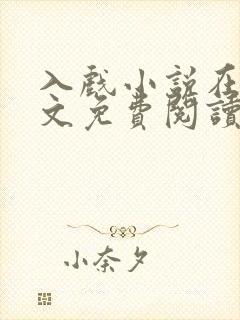 入戲小說在
文免費閱讀
小奈夕